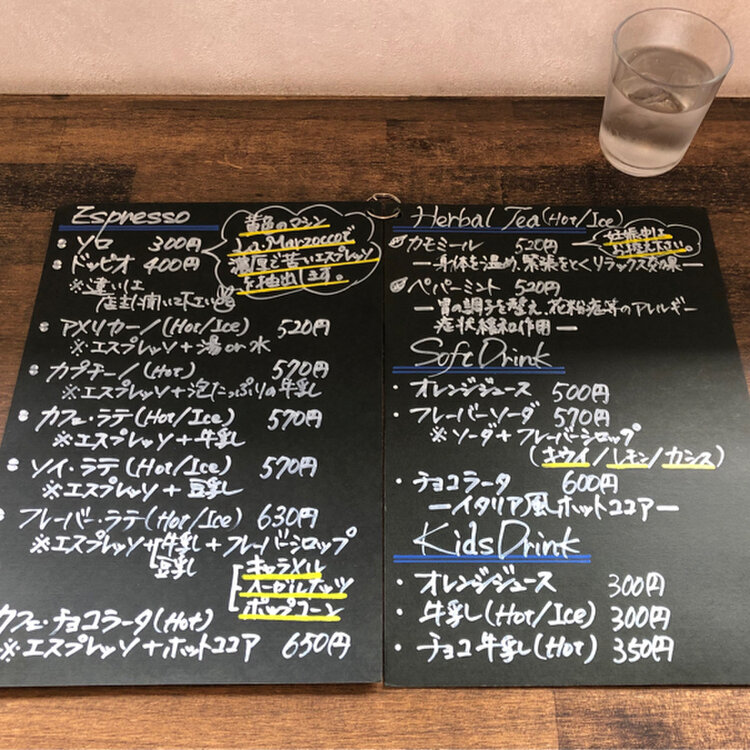 Espresso
ソロ 300円
ドッピオ 400円
※違いは
店主に聞いて下さい
黄色のマシン
La Marzoccoで
濃厚で苦いエスプレッソ
を抽出します。
アメリカーノ(Hot/Ice) 520円
※エスプレッソ+湯or水
カプチーノ(Hot) 570円
※エスプレッソ+泡たっぷりの牛乳
カフェ・ラテ(Hot/Ice) 570円
※エスプレッソ+牛乳
ソイ・ラテ(Hot/Ice) 570円
※エスプレッソ+豆乳
フレーバー・ラテ(Hot/Ice) 630円
※エスプレッソ+牛乳+フレーバーシロップ
豆乳
キャラメル
ヘーゼルナッツ
ポップコーン
カフェ・チョコラータ(Hot)
※エスプレッソ+ホットココア 650円
Herbal Tea(Hot/Ice)
カモミール 520円
妊娠中は
お控え下さい。
ー身体を温め、緊張をとくリラックス効果ー
ペパーミント 520円
ー胃の調子を整え、花粉症等のアレルギー
症状緩和作用ー
Soft Drink
・オレンジジュース 500円
・フレーバーソーダ 570円
※ソーダ+フレーバーシロップ
(キウイ/レモン/カシス)
・チョコラータ 600円
ーイタリア風ホットココアー
Kids Drink
・オレンジジュース 300円
・牛乳(Hot/Ice) 300円
・チョコ牛乳(Hot) 350円